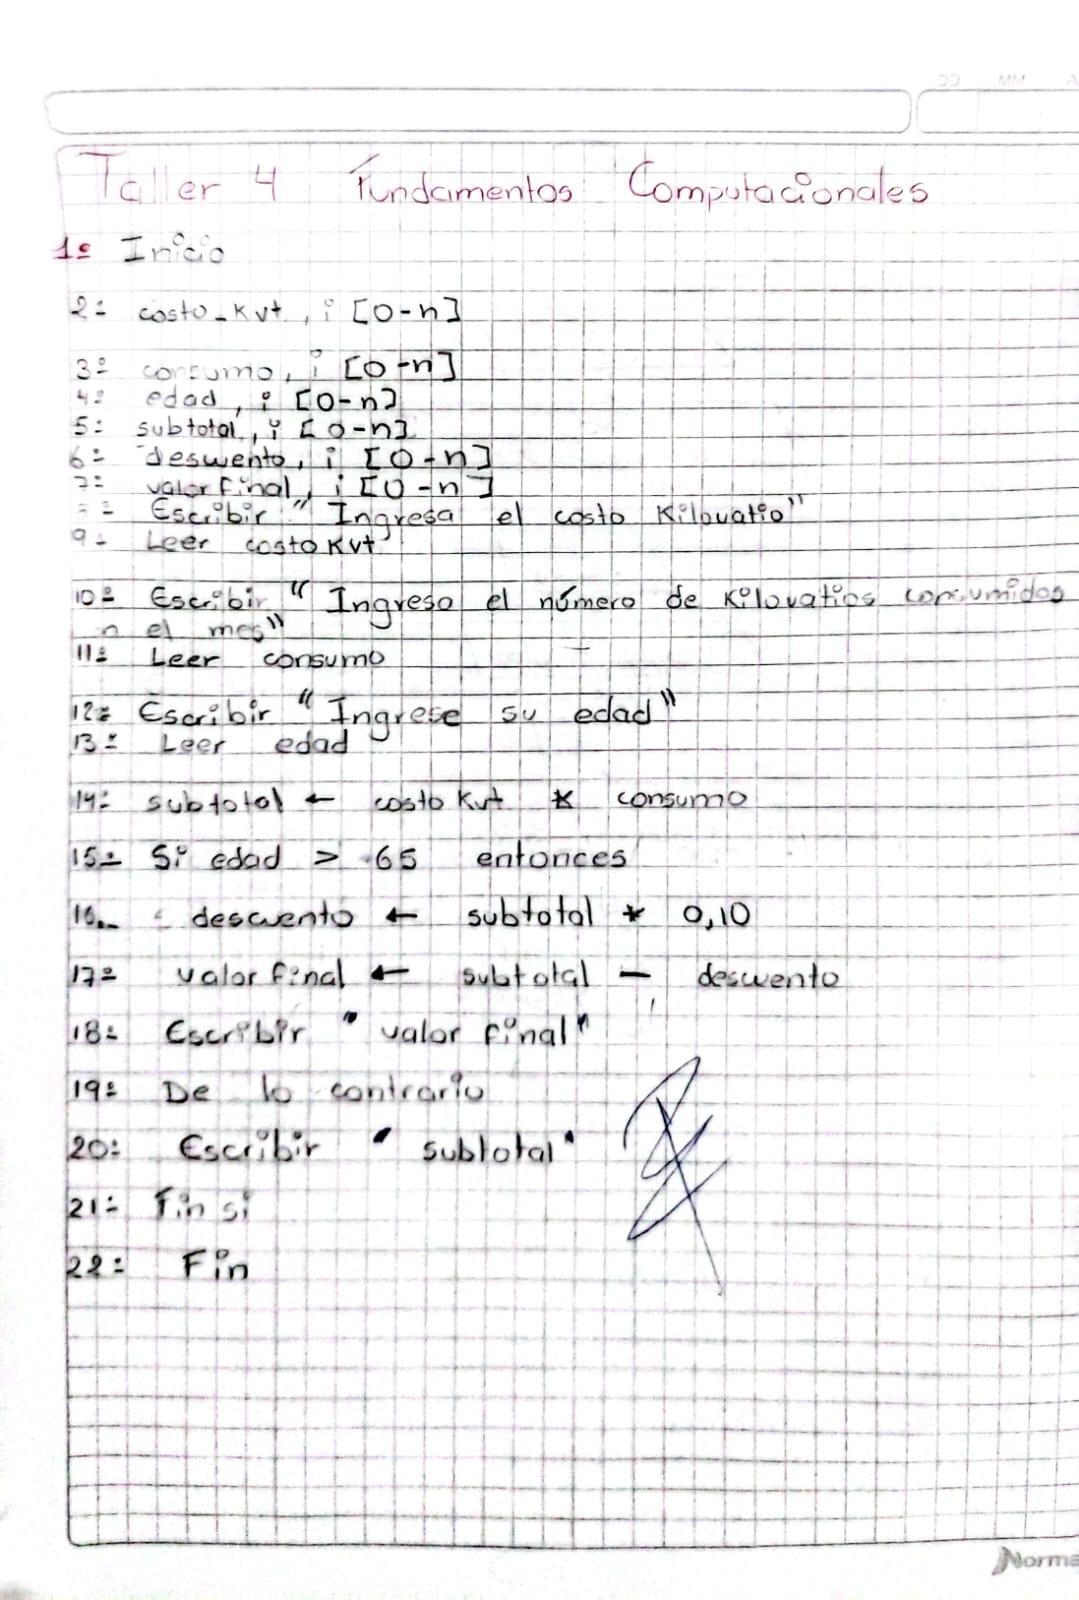 DD MM A
Taller 4 Fundamentos Computacionales
1: Inicio
2: costo_kvt, i [0-n]
3: consumo, i [0-n]
4: edad, i [0-n]
5: subtotal, i [0-n]
6: descuento, i [0-n]
7: valor final, i [0-n]
Escribir "Ingresa el costo Kilovatio"
9- Leer costo Kvt
10: Escribir "Ingreso el número de Kilovatios consumidos
n el mes"
11: Leer consumo
12: Escribir "Ingrese su edad"
13: Leer edad
14: subtotal ← costo Kvt * consumo
15: Si edad > 65 entonces
16.. descuento ← subtotal * 0,10
17: valor final ← subtotal - descuento
18: Escribir "valor final"
19: De lo contrario
20: Escribir "subtotal"
21: Fin si
22: Fin
Norma